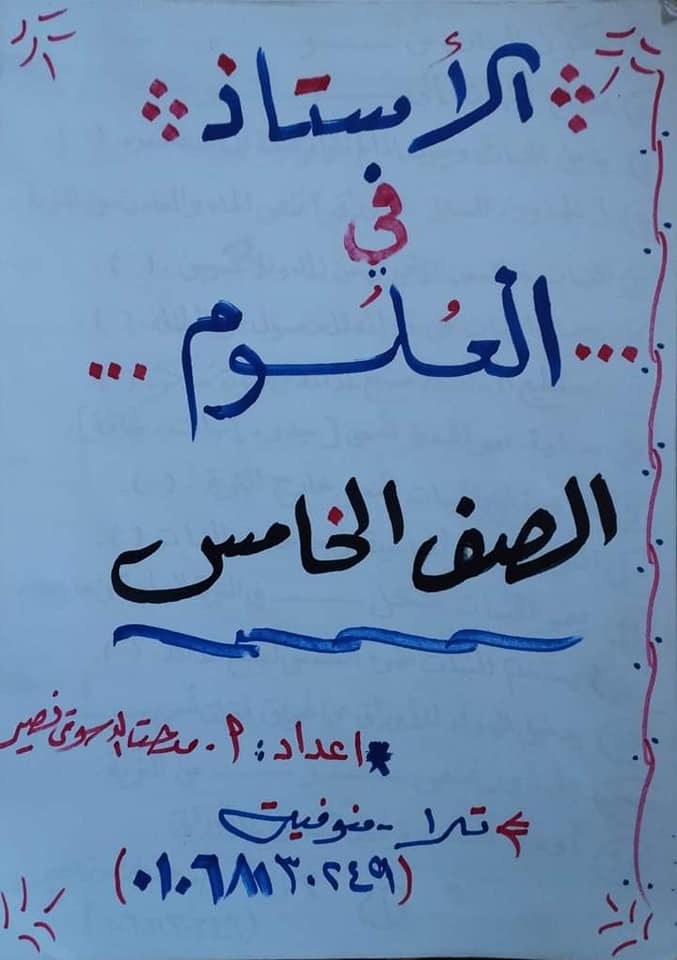 الأستاذ
في
العُلُوم
الصف الخامس
*اعداد: م. مدحت الدسوقى نصير
تلا - منوفيت
(٠١٠٦٨١١٣٠٢٤٩)